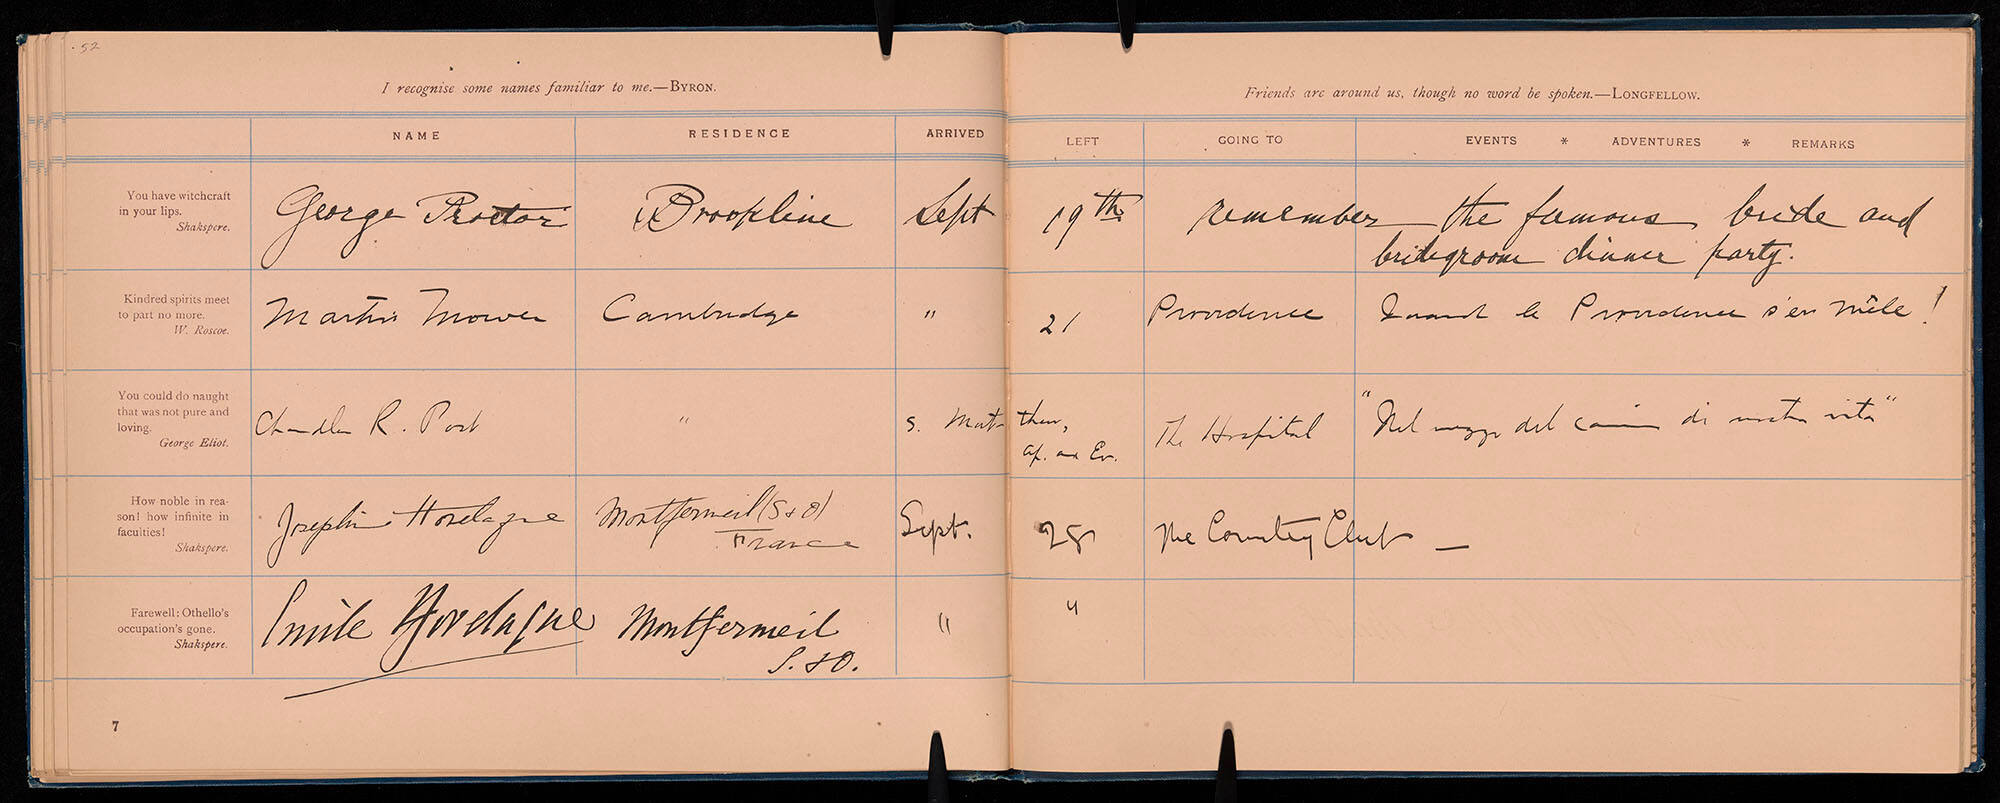 . 52
I recognise some names familiar to me.—BYRON.
Friends are around us, though no word be spoken.—LONGFELLOW.
NAME RESIDENCE ARRIVED LEFT GOING TO EVENTS * ADVENTURES * REMARKS
You have witchcraft
in your lips.
Shakspere.
George Proctor Brookline Sept 19th remember the famous bride and
bridegroom dinner party.
Kindred spirits meet
to part no more.
W. Roscoe.
Martin Mower Cambridge " 21 Providence Quand la Providence s'en mêle!
You could do naught
that was not pure and
loving.
George Eliot.
Chandler R. Post " S. Matthew, The Hospital "Nel mezzo del cammin di nostra vita"
Ap. and Ev.
How noble in rea-
son! how infinite in
faculties!
Shakspere.
Josephine Hovelaque Montfermeil (S & O) Sept. 28 The Country Club —
France
Farewell: Othello's
occupation's gone.
Shakspere.
Emile Hovelaque Montfermeil " "
S. & O.
7